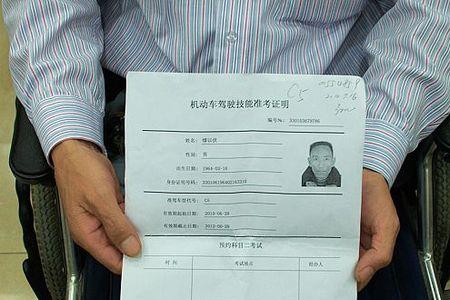 C5
机动车驾驶技能准考证明
编号№: 330103679786
性别: 男
出生日期: 1964-02-16
身份证号码:
准驾车型代号: C5
有效期起始日期: 2010-06-28
有效期截止日期: 2012-06-28
预约科目二考试
时 间 考试地点 经办人